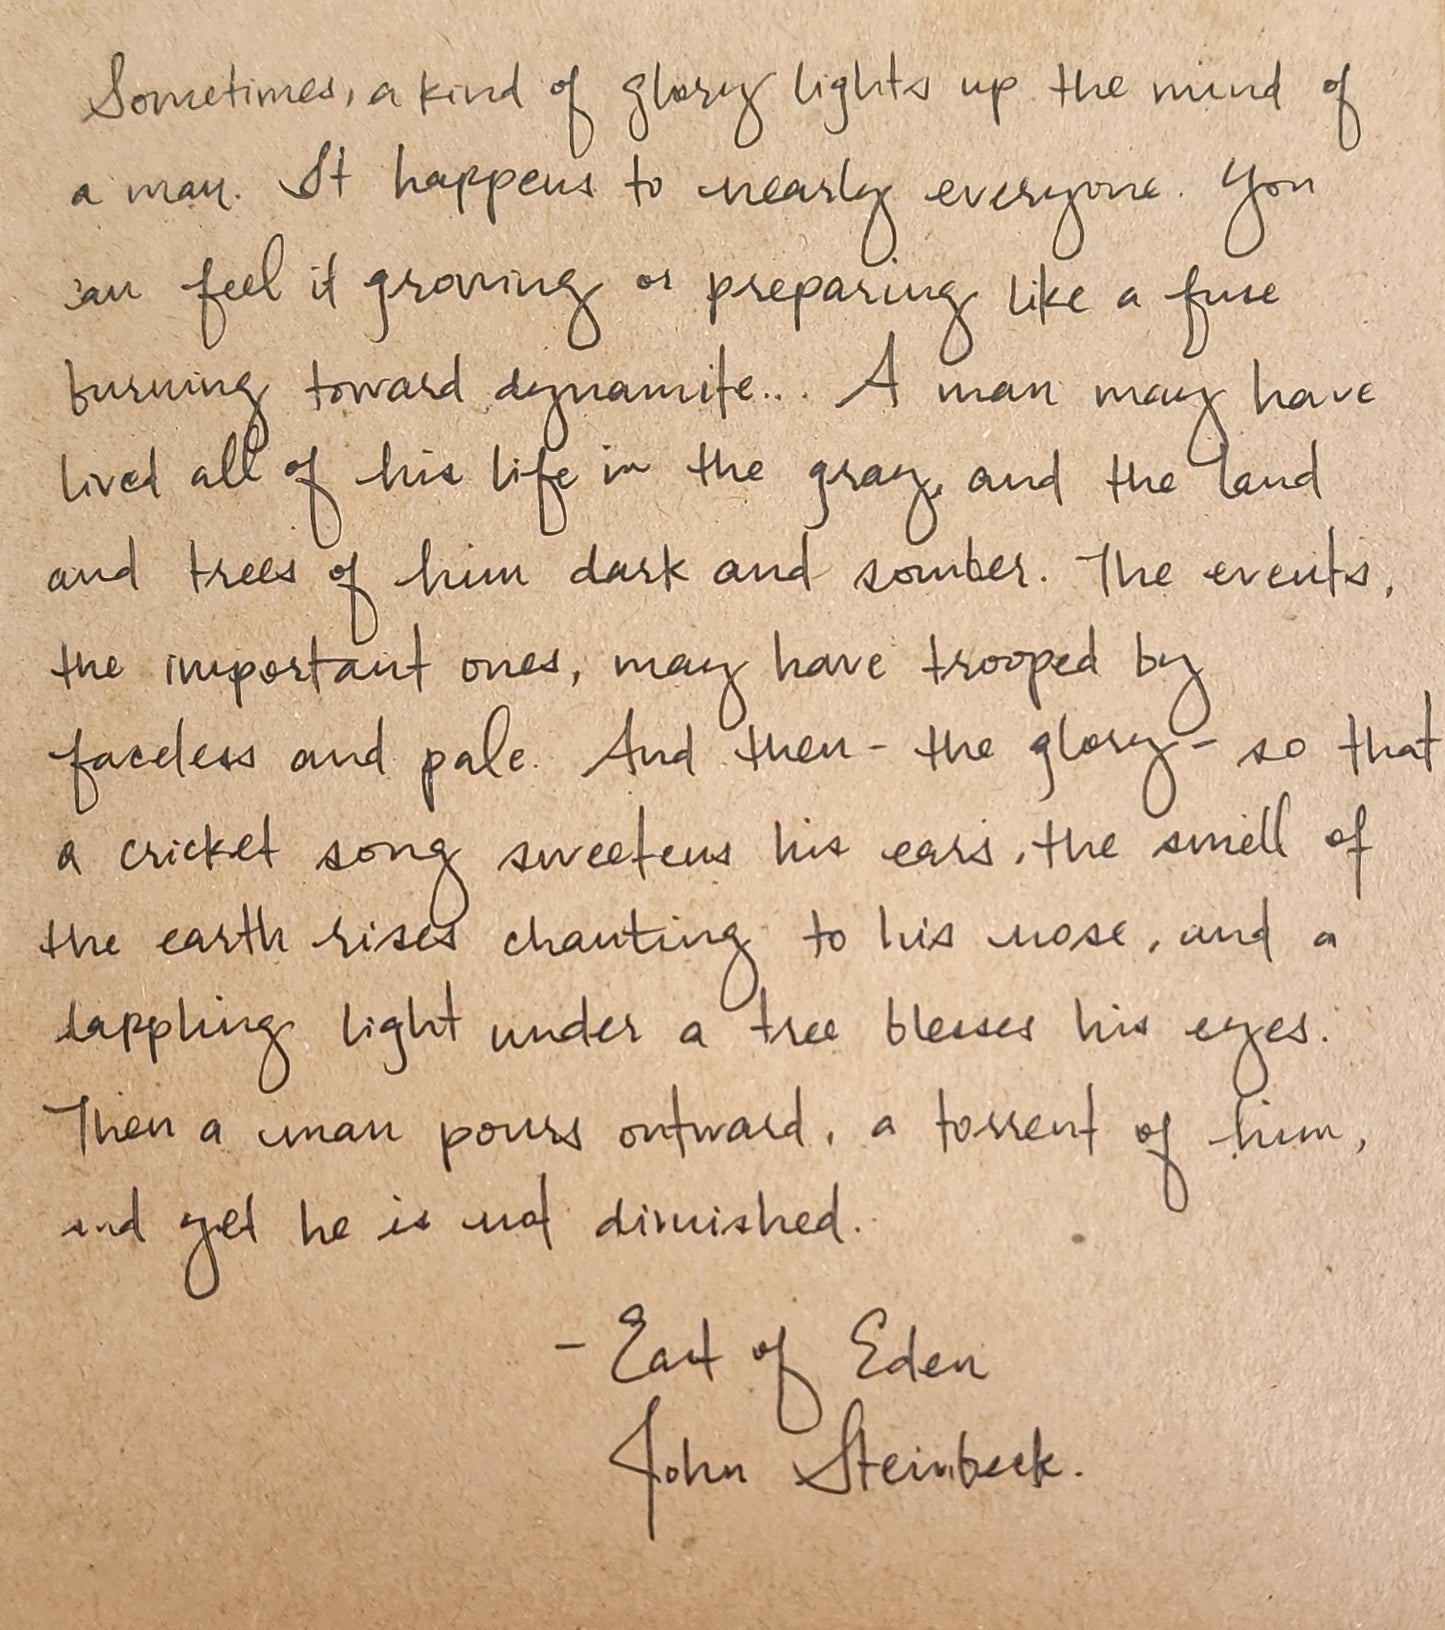 Sometimes, a kind of glory lights up the mind of
a man. It happens to nearly everyone. You
can feel it growing or preparing like a fuse
burning toward dynamite... A man may have
lived all of his life in the gray, and the land
and trees of him dark and somber. The events,
the important ones, may have trooped by
faceless and pale. And then - the glory - so that
a cricket song sweetens his ears, the smell of
the earth rises chanting to his nose, and a
lappling light under a tree blesses his eyes.
Then a man pours outward, a torrent of him,
and yet he is not diminished.
- East of Eden
John Steinbeck.